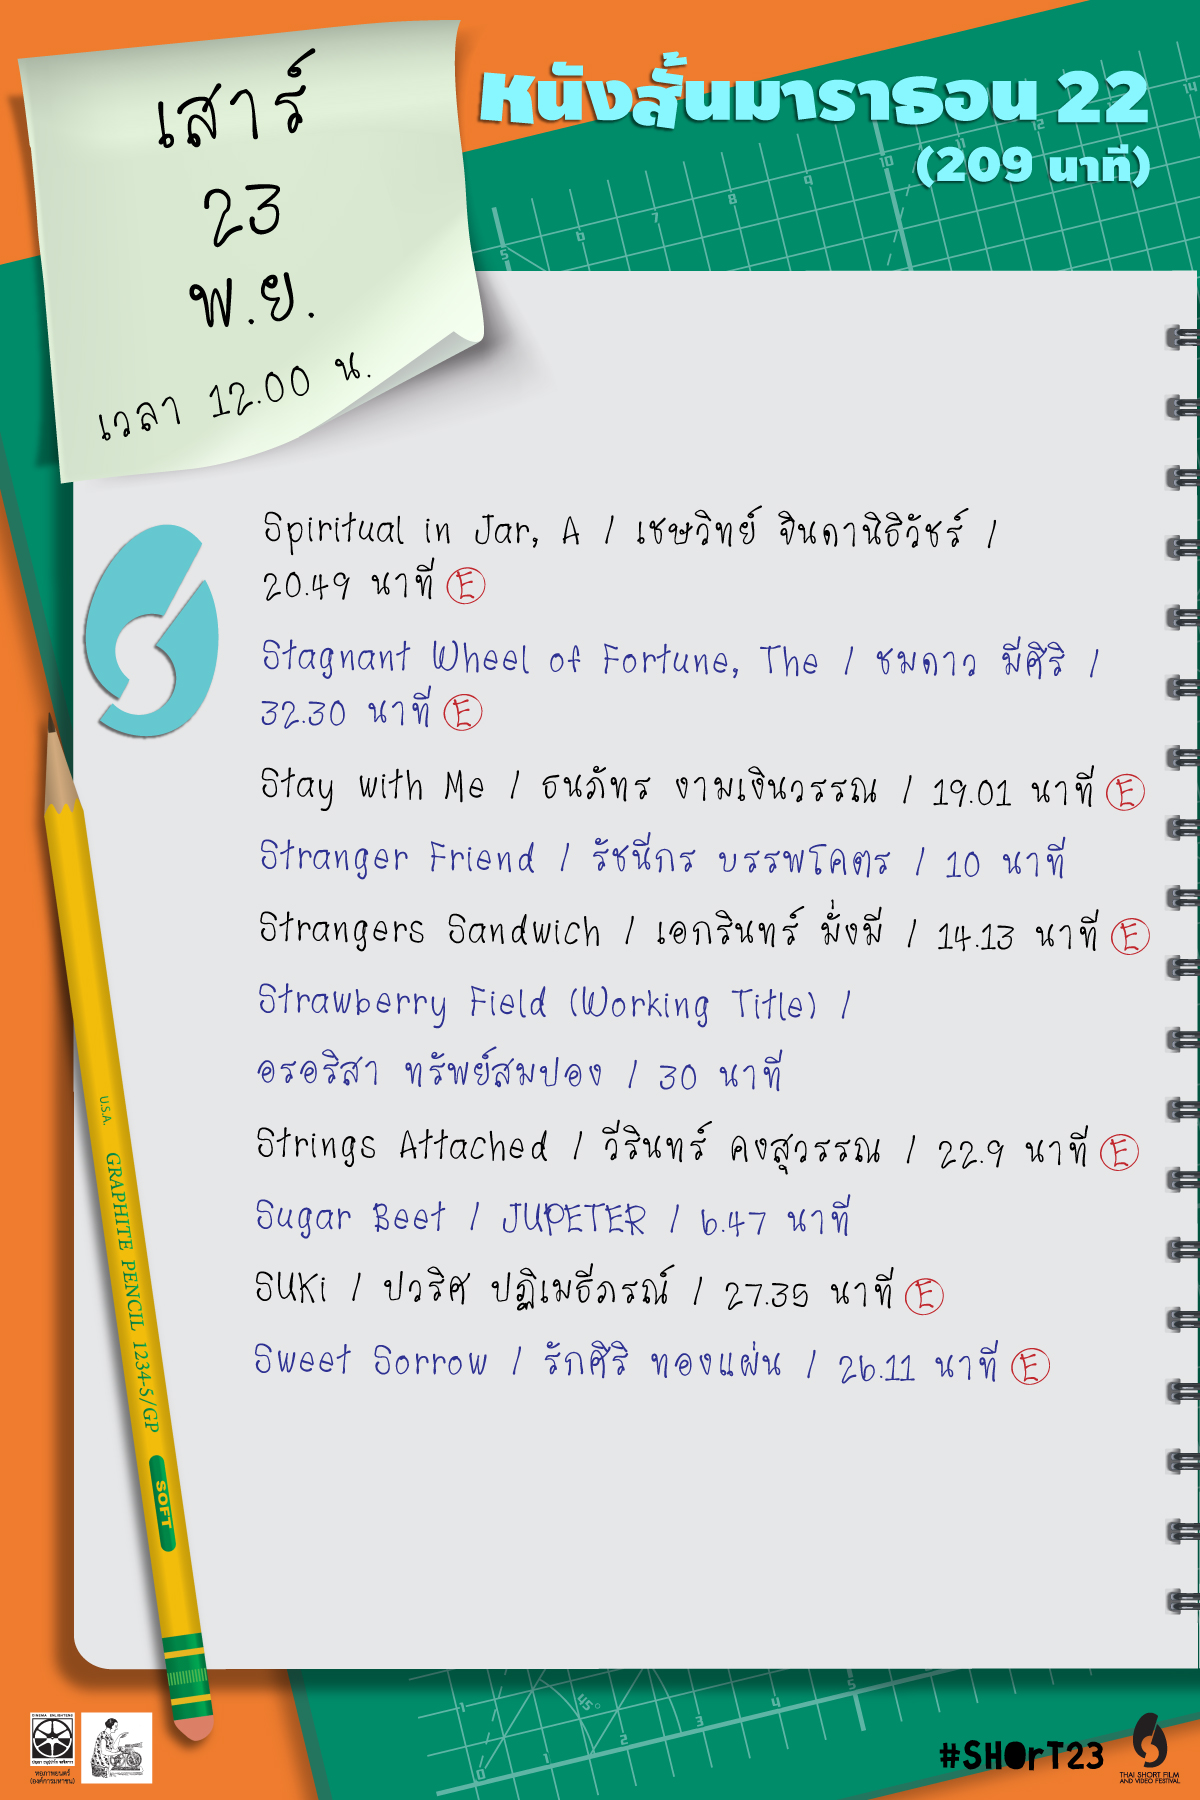 เสาร์
23
พ.ย.
เวลา 12.00 น.
หนังสั้นมาราธอน 22
(209 นาที)
Spiritual in Jar, A / เชษวิทย์ จินดานิธิวัชร์ /
20.49 นาที E
Stagnant Wheel of Fortune, The / ชมดาว มีศิริ /
32.30 นาที E
Stay with Me / ธนภัทร งามเงินวรรณ / 19.01 นาที E
Stranger Friend / รัชนีกร บรรพโคตร / 10 นาที
Strangers Sandwich / เอกรินทร์ มั่งมี / 14.13 นาที E
Strawberry Field (Working Title) /
อรอริสา ทรัพย์สมปอง / 30 นาที
Strings Attached / วีรินทร์ คงสุวรรณ / 22.9 นาที E
Sugar Beet / JUPETER / 6.47 นาที
SUKi / ปวริศ ปฏิเมธีภรณ์ / 27.35 นาที E
Sweet Sorrow / รักศิริ ทองแผ่น / 26.11 นาที E
U.S.A. GRAPHITE PENCIL 1234-5/GP SOFT
5 6 7 8 9 10 12 14
1 2 3 4 5
45°
0 1 2 3 4 5
CINEMA ENLIGHTENS
หอภาพยนตร์
(องค์การมหาชน)
#SHOrT23
THAI SHORT FILM
AND VIDEO FESTIVAL